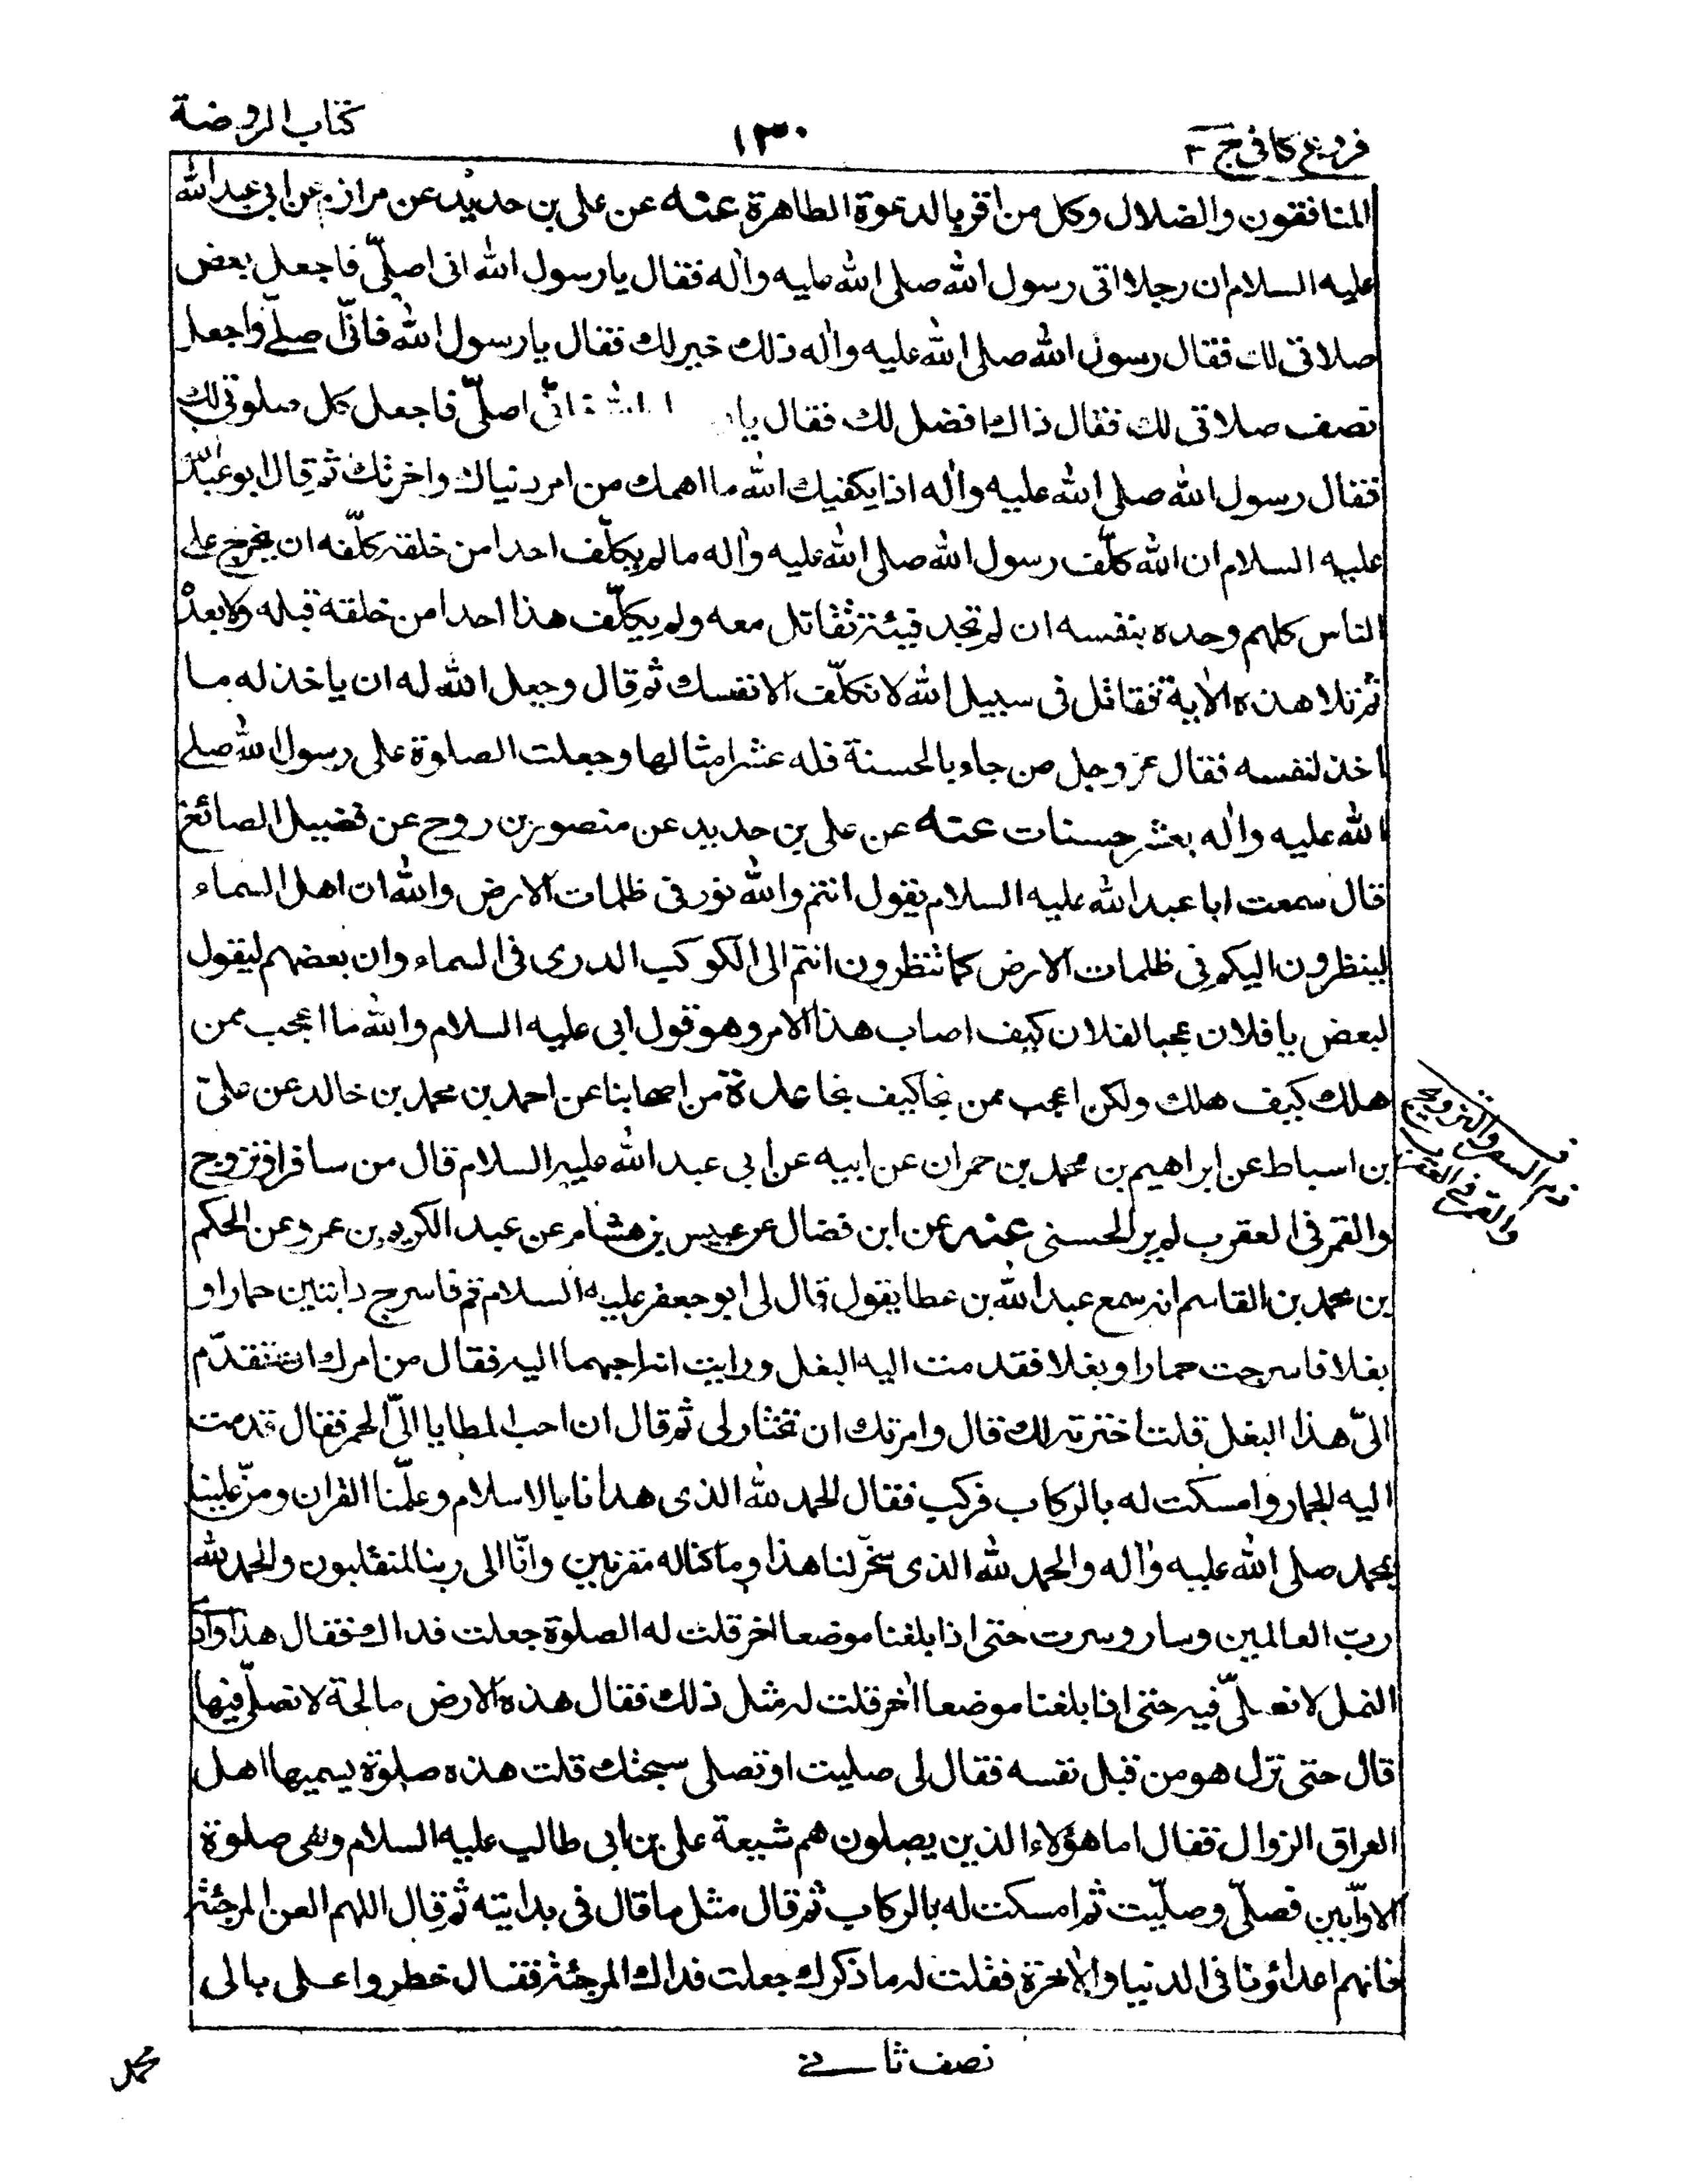 فروع كافى ج ٣
١٣٠
كتاب الروضة
المنافقون والضلال وكل من اقر بالدعوة الطاهرة عنه عن على بن حديد عن مرازم عن ابى عبد الله
عليه السلام ان رجلا اتى رسول الله صلى الله عليه واله فقال يا رسول الله انى اصلّى فاجعل بعض
صلاتى لك فقال رسول الله صلى الله عليه واله ذلك خير لك فقال يا رسول الله فانّى اصلّے واجعل
نصف صلاتى لك فقال ذاك افضل لك فقال يا انّى اصلّى فاجعل كل صلوتى لك
فقال رسول الله صلى الله عليه واله اذا يكفيك الله ما اهمك من امر دنياك واخرتك ثم قال ابو عبد الله
عليه السلام ان الله كلّف رسول الله صلى الله عليه واله ما لم يكلّف احدا من خلقه كلّفه ان يخرج على
الناس كلهم وحده بنفسه ان لم تجد فيئة تقاتل معه ولم يكلّف هذا احدا من خلقه قبله ولا بعده
ثم تلا هذه الاية فقاتل فى سبيل الله لا تكلّف الا نفسك ثم قال وجعل الله له ان ياخذ له ما
اخذ لنفسه فقال عز وجل من جاء بالحسنة فله عشر امثالها وجعلت الصلوة على رسول الله صلے
الله عليه واله بعشر حسنات عنه عن على بن حديد عن منصور بن روح عن فضيل الصائغ
قال سمعت ابا عبد الله عليه السلام يقول انتم والله نور فى ظلمات الارض والله ان اهل السماء
لينظرون اليكم فى ظلمات الارض كما تنظرون انتم الى الكوكب الدرى فى السماء وان بعضهم ليقول
لبعض يا فلان عجبا لفلان كيف اصاب هذا الامر وهو قول ابى عليه السلام والله ما اعجب ممن
هلك كيف هلك ولكن اعجب ممن نجا كيف نجا عدة من اصحابنا عن احمد بن محمد بن خالد عن علىّ
بن اسباط عن ابراهيم بن محمد بن حمران عن ابيه عن ابى عبد الله عليه السلام قال من سافر او تزوج
والقمر فى العقرب لم ير الحسنى عنه عن ابن فضال عن عبيس بن هشام عن عبد الكريم بن عمرو عن الحكم
بن محمد بن القاسم انه سمع عبد الله بن عطا يقول قال لى ابو جعفر عليه السلام قم فاسرج دابتين حمارا و
بغلا فاسرجت حمارا وبغلا فقدمت اليه البغل ورايت انه احبهما اليه فقال من امرك ان تقدّم
الىّ هذا البغل قلت اخترته لك قال وامرتك ان تختار لى ثم قال ان احب المطايا الىّ الحمر فقال قدمت
اليه الحمار وامسكت له بالركاب فركب فقال الحمد لله الذى هدانا بالاسلام وعلّمنا القران ومنّ علينا
بمحمد صلى الله عليه واله والحمد لله الذى سخّر لنا هذا وما كنا له مقرنين وانّا الى ربنا لمنقلبون والحمد لله
ربّ العالمين وسار وسرت حتى اذا بلغنا موضعا اخر قلت له الصلوة جعلت فداك فقال هذا واد
النمل لا نصلّى فيه حتى اذا بلغنا موضعا اخر قلت له مثل ذلك فقال هذه الارض مالحة لا نصلّى فيها
قال حتى نزل هو من قبل نفسه فقال لى صليت او تصلى سبحتك قلت هذه صلوة يسميها اهل
العراق الزوال فقال اما هؤلاء الذين يصلون هم شيعة على بن ابى طالب عليه السلام وهى صلوة
الاوّابين فصلّى وصلّيت ثم امسكت له بالركاب ثم قال مثل ما قال فى بدايته ثم قال اللهم العن المرجئة
فانهم اعداؤنا فى الدنيا والاخرة فقلت له ما ذكرك جعلت فداك المرجئة فقال خطروا على بالى
السفر والتزويج
والقمر فى العقرب
نصف ثانے
محمد